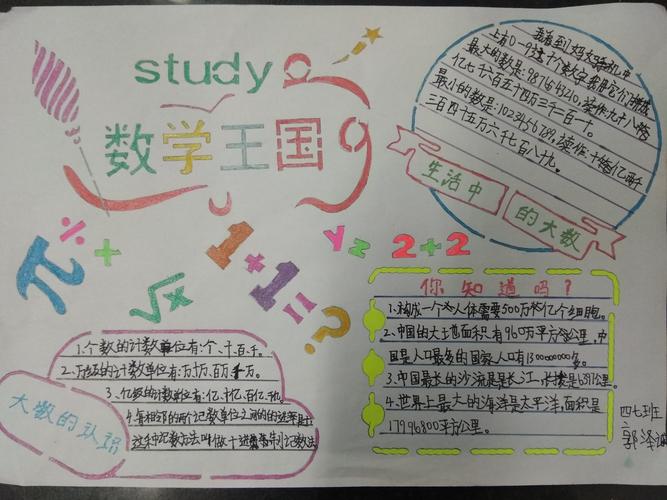 study
数学王国
我看到妈妈手机中
上有0~9这十个数字,我用它们排成
最大的数是:9876543210,读作:九十八
亿七千六百五十四万三千二百一十。
最小的数是:1023456789,读作:十亿二千
三百四十五万六千七百八十九。
生活中
的大数
π
÷
+
√x
1+1=?
yz
2+2
你知道吗?
1.构成一个人体需要500万亿个细胞。
2.中国的大土地面积有960万平方公里,中
国是人口最多的国家人口有1300000000多。
3.中国最长的河流是长江,长度是6397公里。
4.世界上最大的海洋是太平洋,面积是
17996800平方公里。
1.个数的计数单位有:个、十、百、千。
2.万级的计数单位有:万、十万、百万、千万。
3.亿级的计数单位有:亿、十亿、百亿、千亿。
4.每相邻的两个记数单位之间的的进率是十
这种记数方法叫做十进制记数法
大数的认识
四七班
郭泽